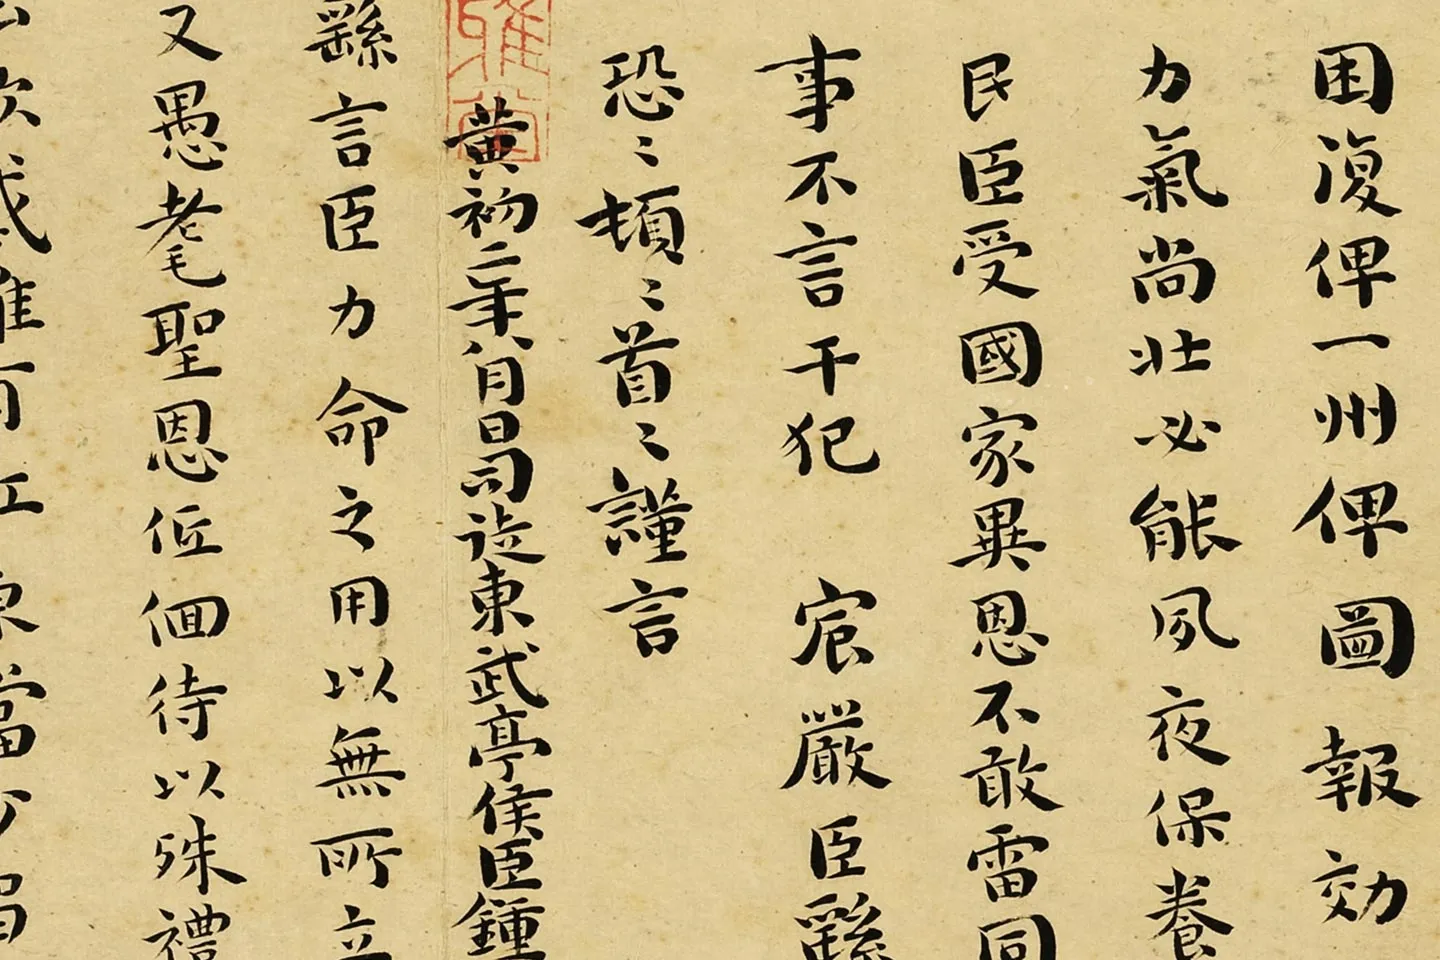 困復俾一州俾圖報効
力氣尚壯必能夙夜保養
民臣受國家異恩不敢雷同
事不言干犯 宸嚴臣繇
恐〻頓〻首〻謹言
黃初二年八月日司徒東武亭侯臣鍾
繇言臣力命之用以無所立
又愚耄聖恩低佪待以殊禮
雖有江東當少留